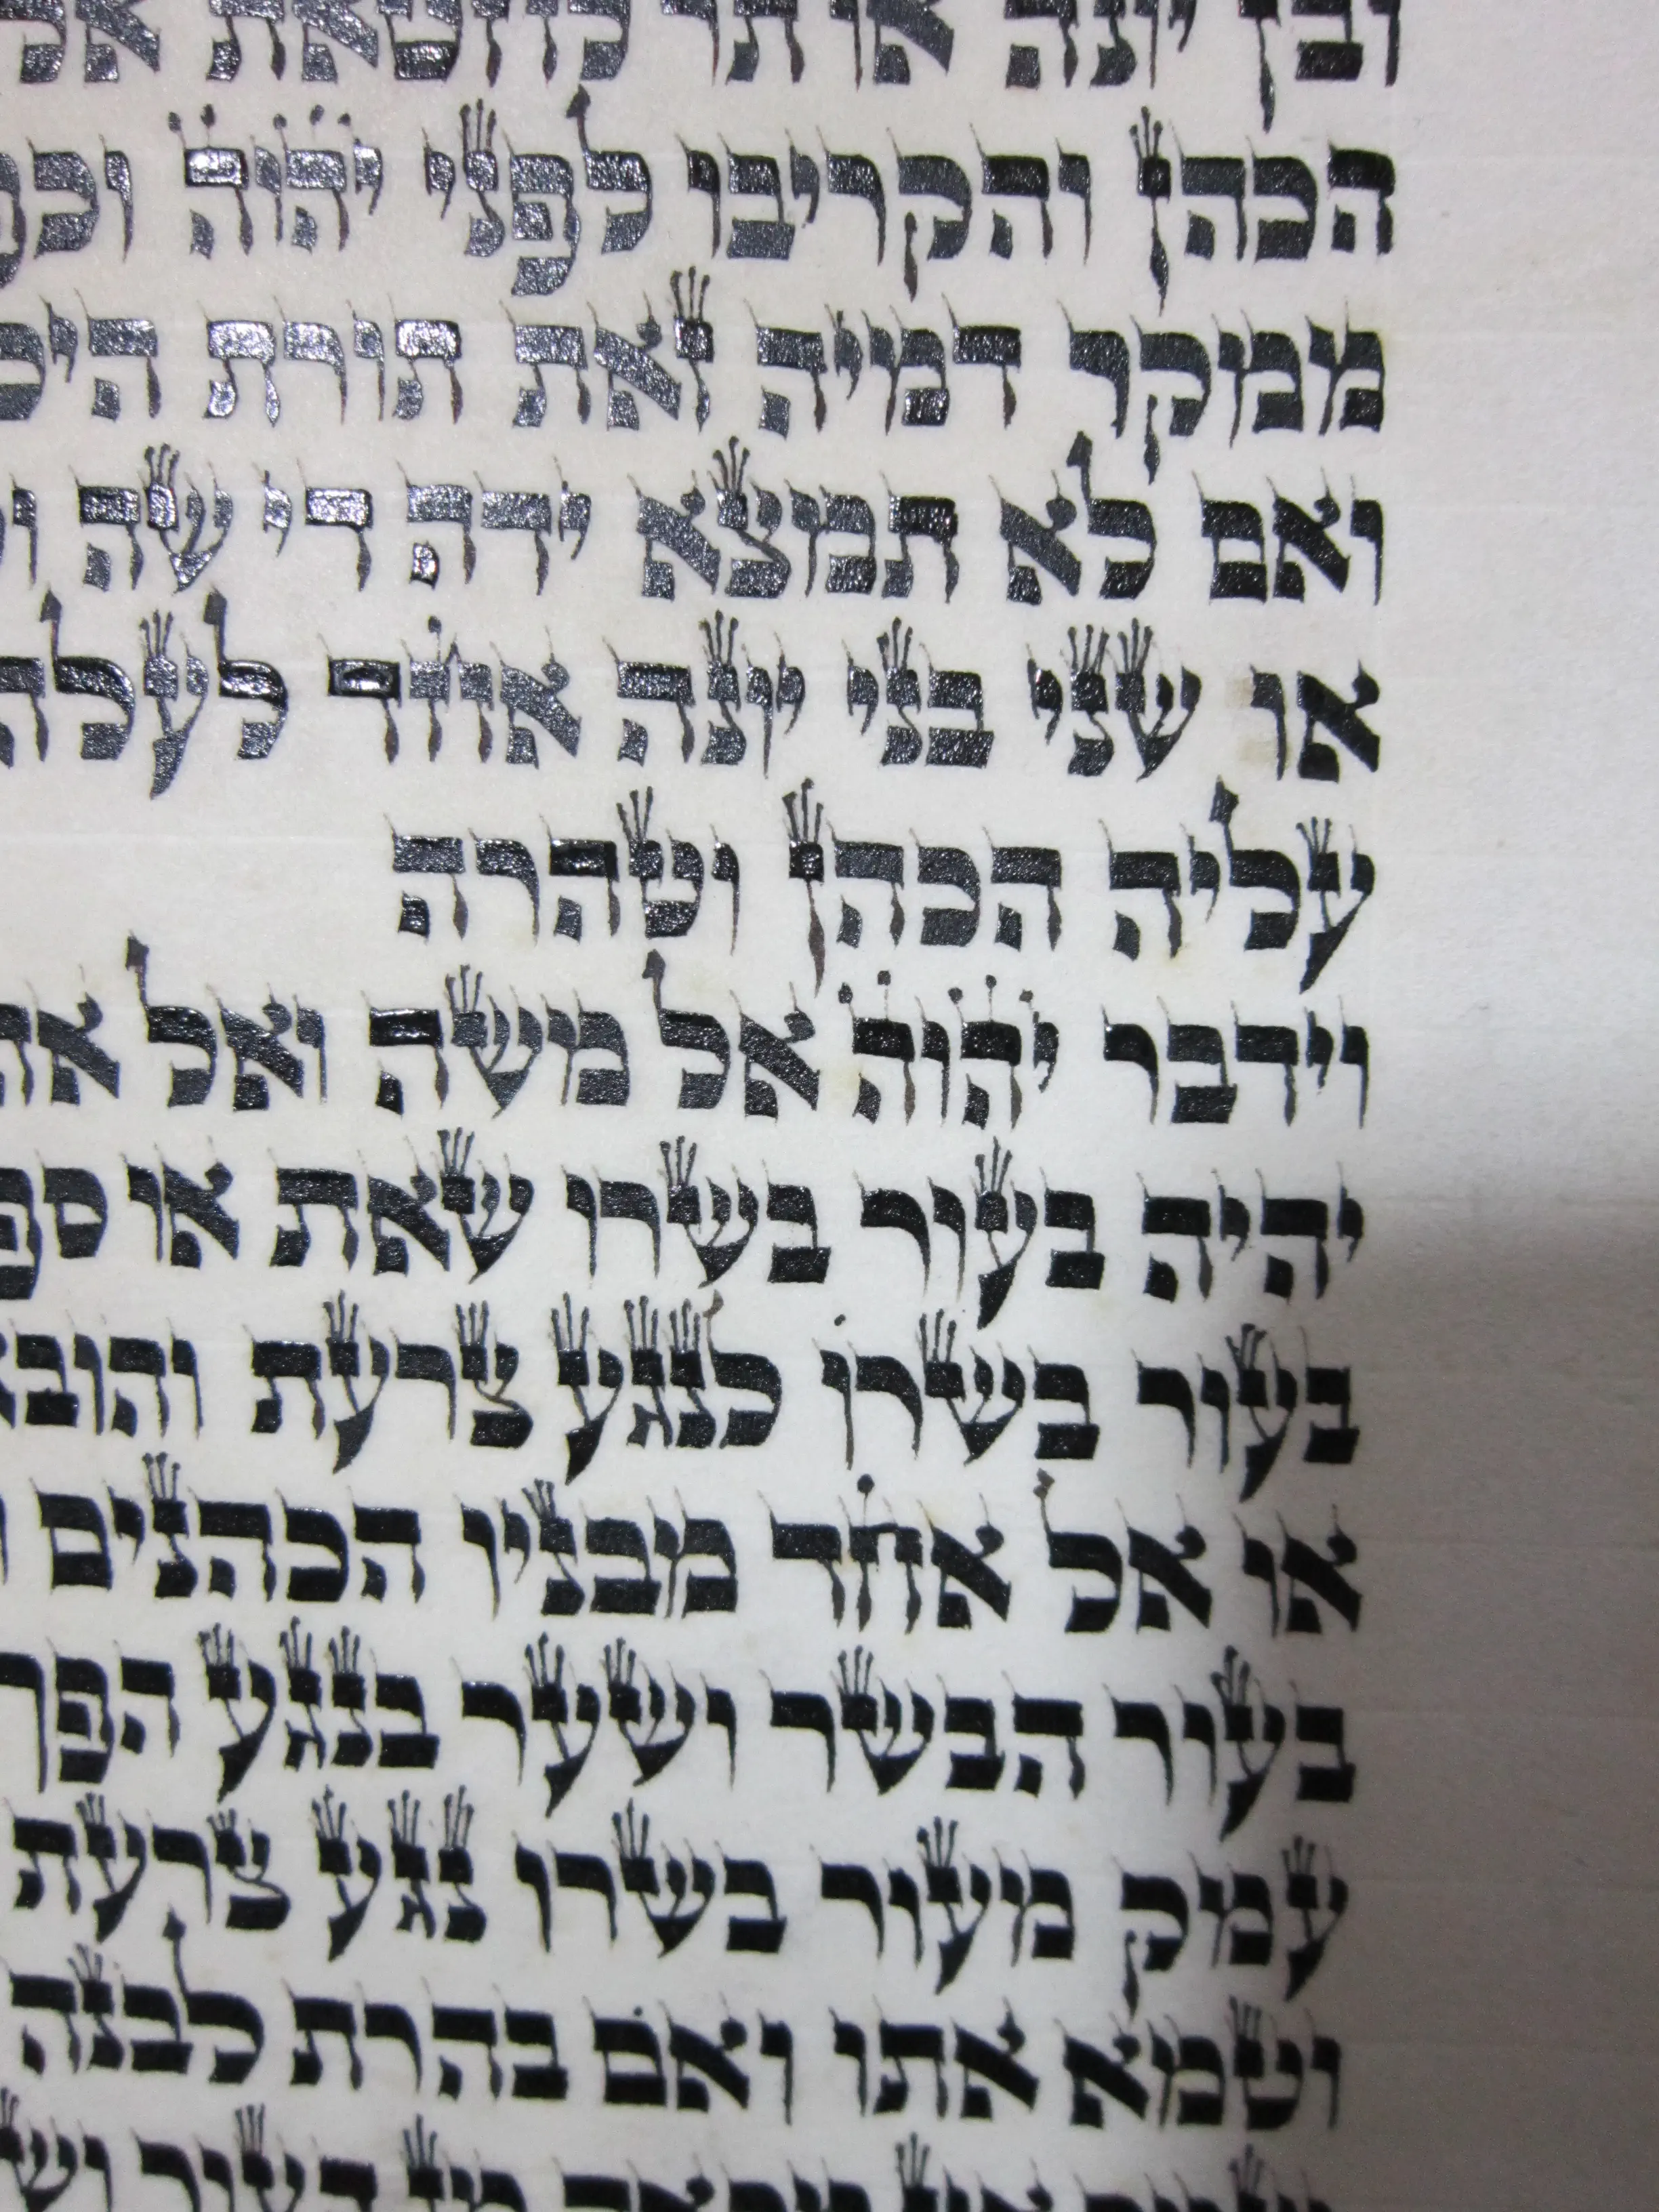 ובן יונה או תר לחטאת אל
הכהן והקריבו לפני יהוה וכפ
ממקר דמיה זאת תורת הי
ואם לא תמצא ידה די שה ו
או שני בני יונה אחד לעלה
עליה הכהן וטהרה
וידבר יהוה אל משה ואל אה
יהיה בעור בשרו שאת או ספ
בעור בשרו לנגע צרעת והובא
או אל אחד מבניו הכהנים ו
בעור הבשר ושער בנגע הפך
עמק מעור בשרו נגע צרעת
וטמא אתו ואם בהרת לבנה
מן העור וש